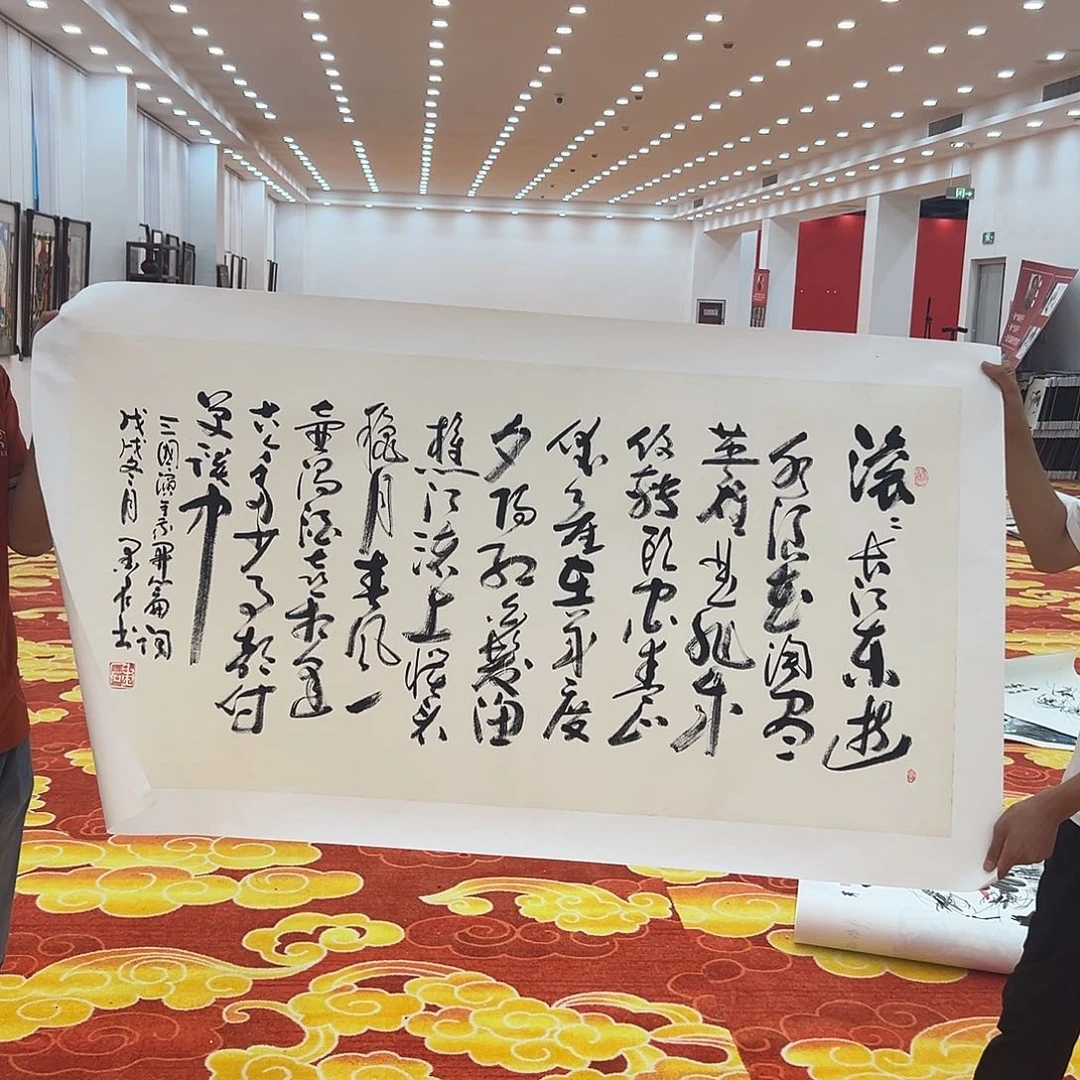 滚滚长江东逝
水浪花淘尽
英雄是非成
败轉头空青山
依舊在幾度
夕阳红白髮渔
樵江渚上惯看
秋月春风一
壶浊酒喜相逢
古今多少事都付
笑谈中
三國演義開篇词
戊戌冬月
书